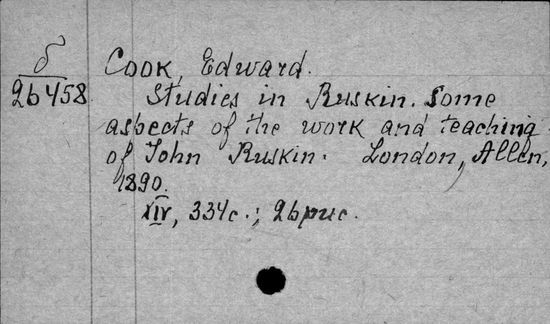 б
26458
Cook, Edward.
Studies in Ruskin. Some
aspects of the work and teaching
of John Ruskin. London, Allen,
1890.
XIV, 334с.; 26рис.